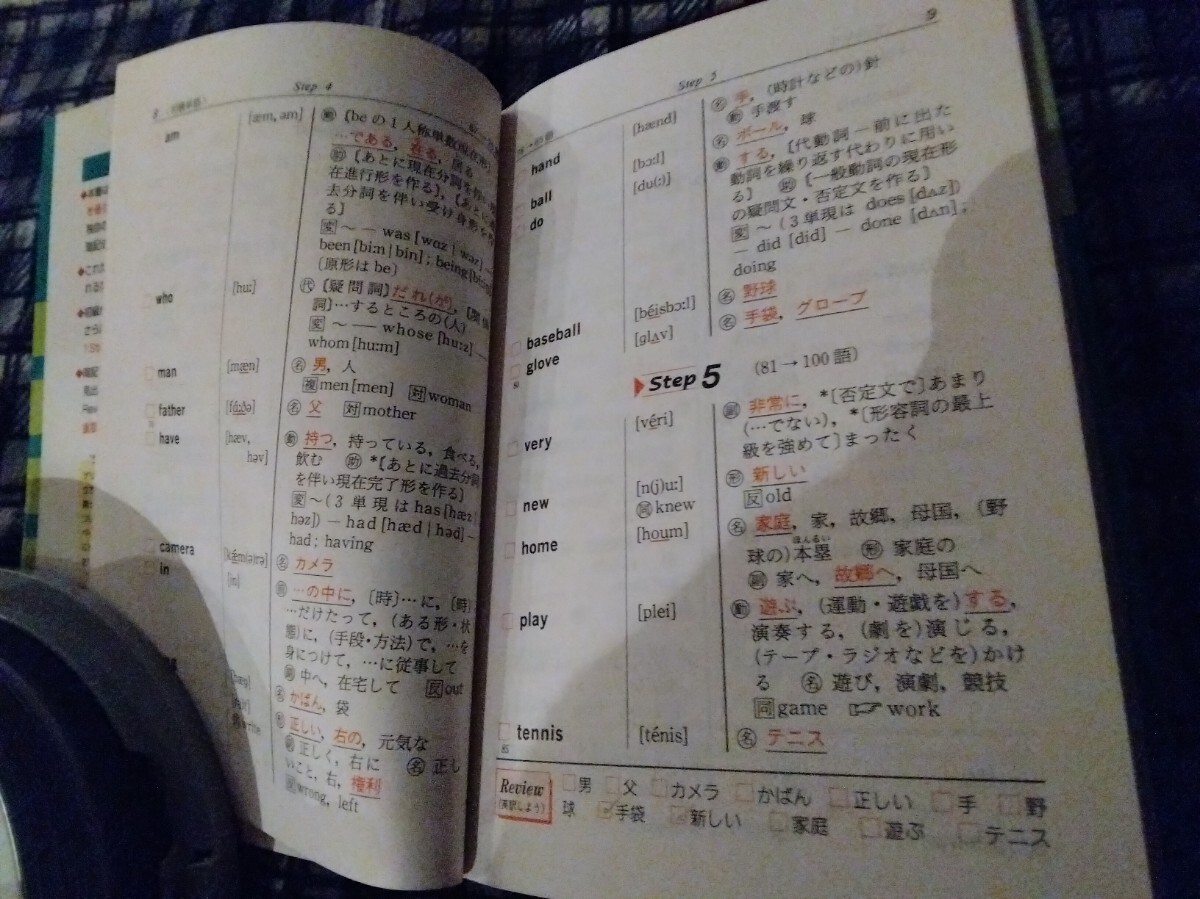 8
Step 4
am [æm, əm] 動 〔beの1人称単数現在形〕
…である, 在る, 居る
助 〔あとに現在分詞を伴い
在進行形を作る〕, 〔あとに
去分詞を伴い受け身形を作
る〕
変 ～ ― was [wɑz | wəz] ―
been [biːn | bin] ; being
〔原形はbe〕
who [huː] 代 〔疑問詞〕だれ(が),
詞〕…するところの(人)
変 ～ ― whose [huːz]
whom [huːm]
man [mæn] 名 男, 人
複 men [men] 対 woman
father [fɑ́ːðə] 名 父 対 mother
have [hæv, həv] 動 持つ, 持っている, 食べる,
飲む 助 *〔あとに過去分詞
を伴い現在完了形を作る〕
変 ～(3単現はhas [hæz |
həz]) ― had [hæd | həd] ―
had ; having
camera [kǽm(ə)rə] 名 カメラ
in [in] 前 …の中に, 〔時〕…に, 〔時〕
…だけたって, (ある形・状
態)に, (手段・方法)で, …を
身につけて, …に従事して
副 中へ, 在宅して 反 out
名 かばん, 袋
形 正しい, 右の, 元気な
副 正しく, 右に 名 正し
いこと, 右, 権利
wrong, left
Step 5
9
hand [hænd] 名 手, (時計などの)針
動 手渡す
ball [bɔːl] 名 ボール, 球
do [du(ː)] 動 する, 〔代動詞―前に出た
動詞を繰り返す代わりに用い
る〕 助 〔一般動詞の現在形
の疑問文・否定文を作る〕
変 ～(3単現は does [dʌz])
― did [did] ― done [dʌn] ;
doing
baseball [béisbɔːl] 名 野球
glove [glʌv] 名 手袋, グローブ
80
Step 5 (81→100語)
very [véri] 副 非常に, *〔否定文で〕あまり
(…でない), *〔形容詞の最上
級を強めて〕まったく
new [n(j)uː] 形 新しい
同 knew 反 old
home [houm] 名 家庭, 家, 故郷, 母国, (野
球の)本塁 形 家庭の
ほんるい
副 家へ, 故郷へ, 母国へ
play [plei] 動 遊ぶ, (運動・遊戯を)する,
演奏する, (劇を)演じる,
(テープ・ラジオなどを)かけ
る 名 遊び, 演劇, 競技
同 game ☞ work
tennis [ténis] 名 テニス
85
Review 男 父 カメラ かばん 正しい 手 野
(英訳しよう) 球 手袋 新しい 家庭 遊ぶ テニス